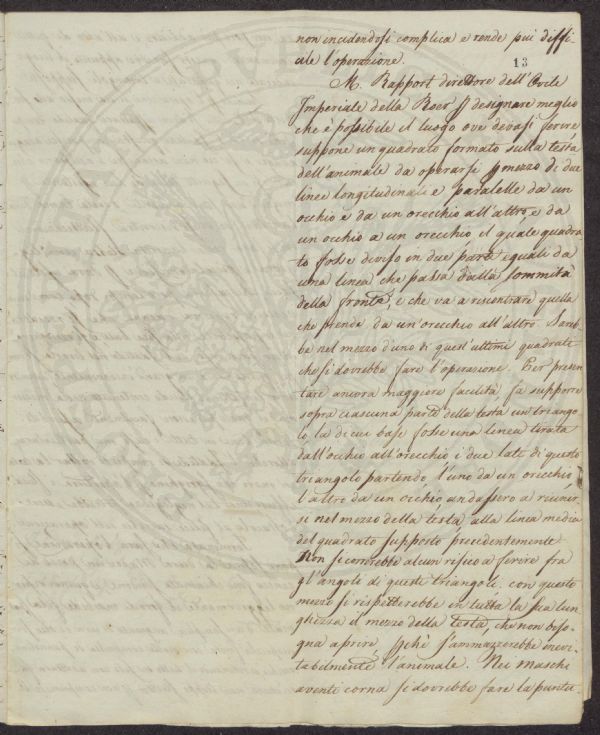 non incidendosi complica e rende piú diffi-
cile l'operazione.
13
M. Rapport direttore dell'Ovile
Imperiale della Roer p designare meglio
che è possibile il luogo ove devasi ferire
suppone un quadrato formato sulla testa
dell'animale da operarsi p mezzo di due
linee longitudinali e paralelle da un
occhio e da un orecchio all'altro, e da
un occhio a un orecchio il quale quadra
to fosse diviso in due parti eguali da
una linea che passa dalla sommità
della fronte, e che va a riscontrare quella
che prende da un'orecchio all'altro. Sareb
be nel mezzo d'uno di quest'ultimi quadrati
che si dovrebbe fare l'operazione. Per presen
tare ancora maggiore facilità, fa supporre
sopra ciascuna parte della testa un triango
lo la di cui base fosse una linea tirata
dall'occhio all'orecchio i due lati di questo
triangolo partendo, l'uno da un orecchio
l'altro da un occhio andassero a riunir
si nel mezzo della testa alla linea media
del quadrato supposto precedentemente.
Non si correrebbe alcun risico a ferire fra
gl'angoli di queste triangoli. con questo
mezzo si rispetterebbe in tutta la sua lun
ghezza il mezzo della testa, che non biso
gna aprire, pchè s'ammazzerebbe inevi
tabilmente l'animale. Nei maschi
aventi corna si dovrebbe fare la puntu-